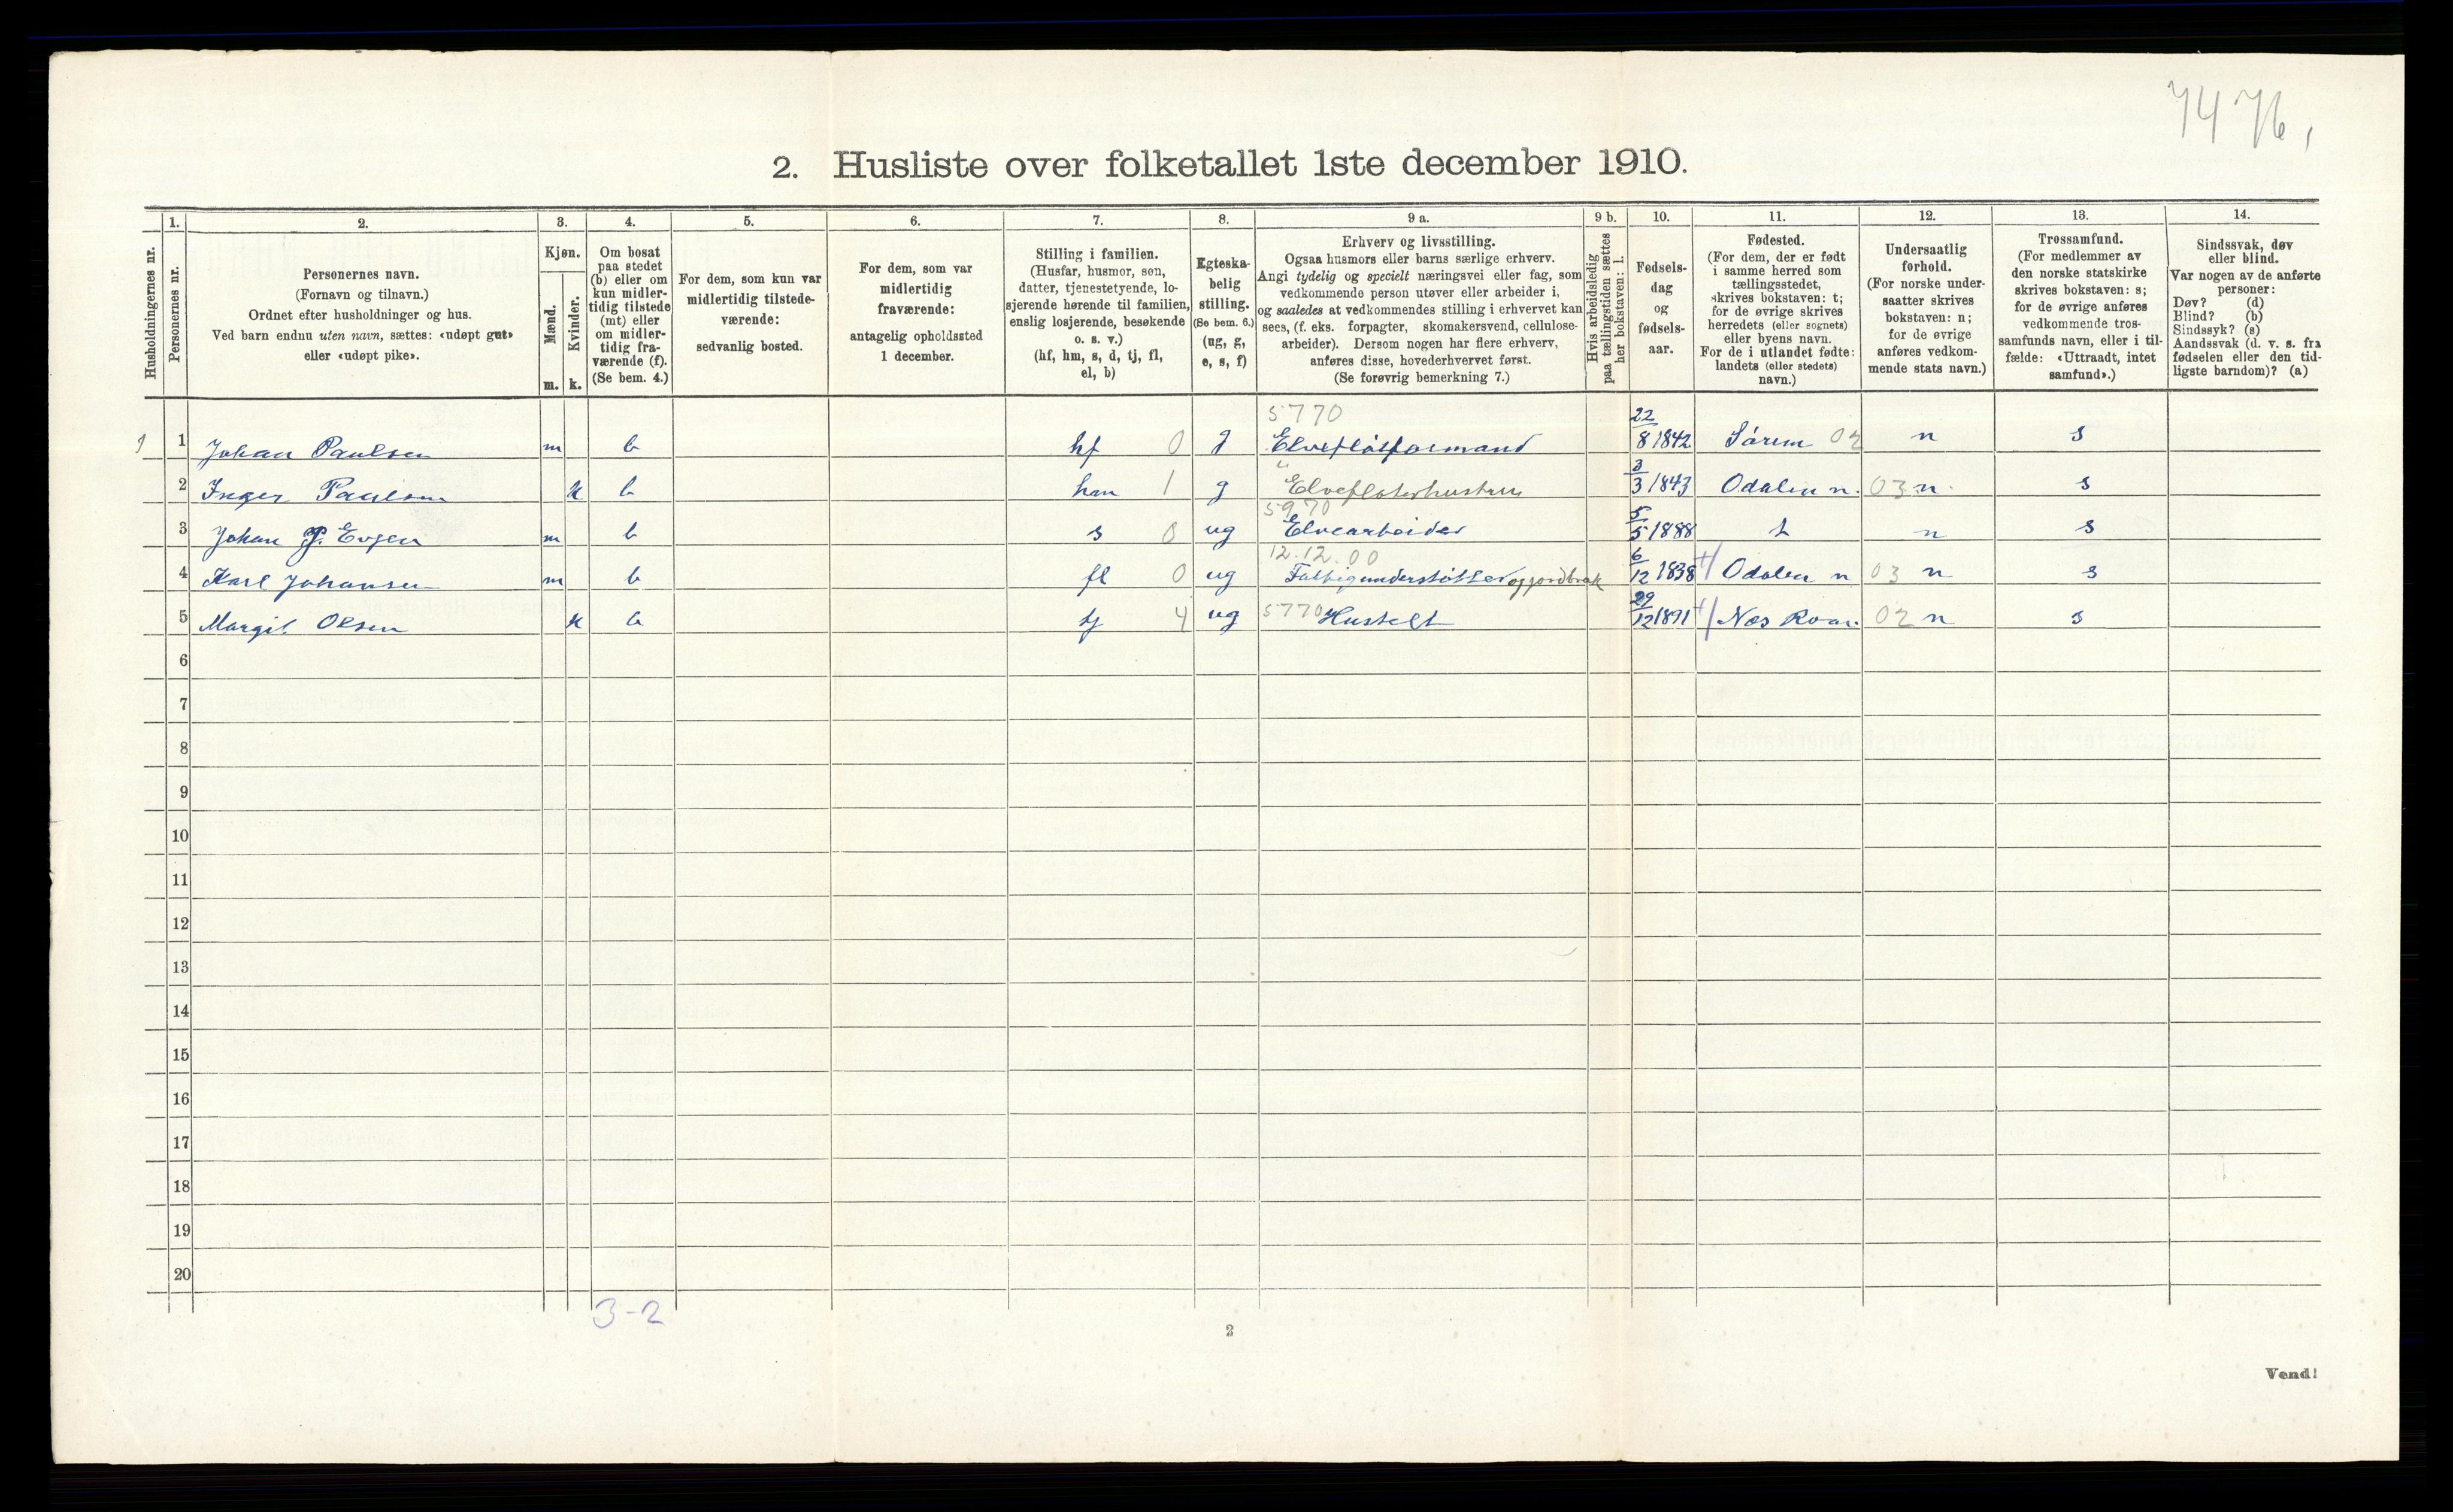 7476,
2. Husliste over folketallet 1ste december 1910.
Husholdningernes nr.
1.
Personernes nr.
2.
Personernes navn.
(Fornavn og tilnavn.)
Ordnet efter husholdninger og hus.
Ved barn endnu uten navn, sættes: «udøpt gut»
eller «udøpt pike».
3.
Kjøn.
Mænd.
Kvinder.
m. k.
4.
Om bosat
paa stedet
(b) eller om
kun midler-
tidig tilstede
(mt) eller
om midler-
tidig fra-
værende (f).
(Se bem. 4.)
5.
For dem, som kun var
midlertidig tilstede-
værende:
sedvanlig bosted.
6.
For dem, som var
midlertidig
fraværende:
antagelig opholdssted
1 december.
7.
Stilling i familien.
(Husfar, husmor, søn,
datter, tjenestetyende, lo-
sjerende hørende til familien,
enslig losjerende, besøkende
o. s. v.)
(hf, hm, s, d, tj, fl,
el, b)
8.
Egteska-
belig
stilling.
(Se bem. 6.)
(ug, g,
e, s, f)
9 a.
Erhverv og livsstilling.
Ogsaa husmors eller barns særlige erhverv.
Angi tydelig og specielt næringsvei eller fag, som
vedkommende person utøver eller arbeider i,
og saaledes at vedkommendes stilling i erhvervet kan
sees, (f. eks. forpagter, skomakersvend, cellulose-
arbeider). Dersom nogen har flere erhverv,
anføres disse, hovederhvervet først.
(Se forøvrig bemerkning 7.)
9 b.
Hvis arbeidsledig
paa tællingstiden sættes
her bokstaven: l.
10.
Fødsels-
dag
og
fødsels-
aar.
11.
Fødested.
(For dem, der er født
i samme herred som
tællingsstedet,
skrives bokstaven: t;
for de øvrige skrives
herredets (eller sognets)
eller byens navn.
For de i utlandet fødte:
landets (eller stedets)
navn.)
12.
Undersaatlig
forhold.
(For norske under-
saatter skrives
bokstaven: n;
for de øvrige
anføres vedkom-
mende stats navn.)
13.
Trossamfund.
(For medlemmer av
den norske statskirke
skrives bokstaven: s;
for de øvrige anføres
vedkommende tros-
samfunds navn, eller i til-
fælde: «Uttraadt, intet
samfund».)
14.
Sindssvak, døv
eller blind.
Var nogen av de anførte
personer:
Døv? (d)
Blind? (b)
Sindssyk? (s)
Aandssvak (d. v. s. fra
fødselen eller den tid-
ligste barndom)? (a)
5770
1 1 Johan Paulsen m b hf 0 g Elvefløtformand 22/8 1842 Sørum 02 n s
2 Inger Paulsen k b hm 1 g " Elvefløterhustru 3/3 1843 Odalen n. 03 n s
5970
3 Johan P. Evjen m b s 0 ug Elvearbeider 5/5 1888 t n s
12.12.00
4 Karl Johansen m b fl 0 ug Fattigunderstøttet og jordbruk 6/12 1838 Odalen n 03 n s
5 Margit Olsen k b tj 4 ug 5770 Hustelt 29/12 1891 Nes Rom. 02 n s
6
7
8
9
10
11
12
13
14
15
16
17
18
19
20
3-2
2
Vend!